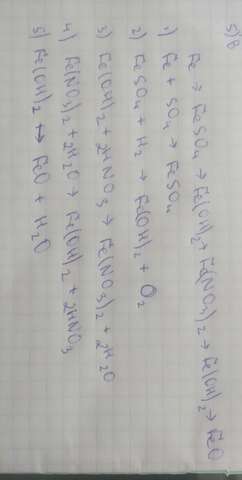 5)8
Fe → FeSO₄ → Fe(OH)₂ → Fe(NO₃)₂ → Fe(OH)₂ → FeO
1) Fe + SO₄ → FeSO₄
2) FeSO₄ + H₂ → Fe(OH)₂ + O₂
3) Fe(OH)₂ + 2HNO₃ → Fe(NO3)₂ + 2H₂O
4) Fe(NO₃)₂ + 2H₂O → Fe(OH)₂ + 2HNO₃
5) Fe(OH)₂ → FeO + H₂O